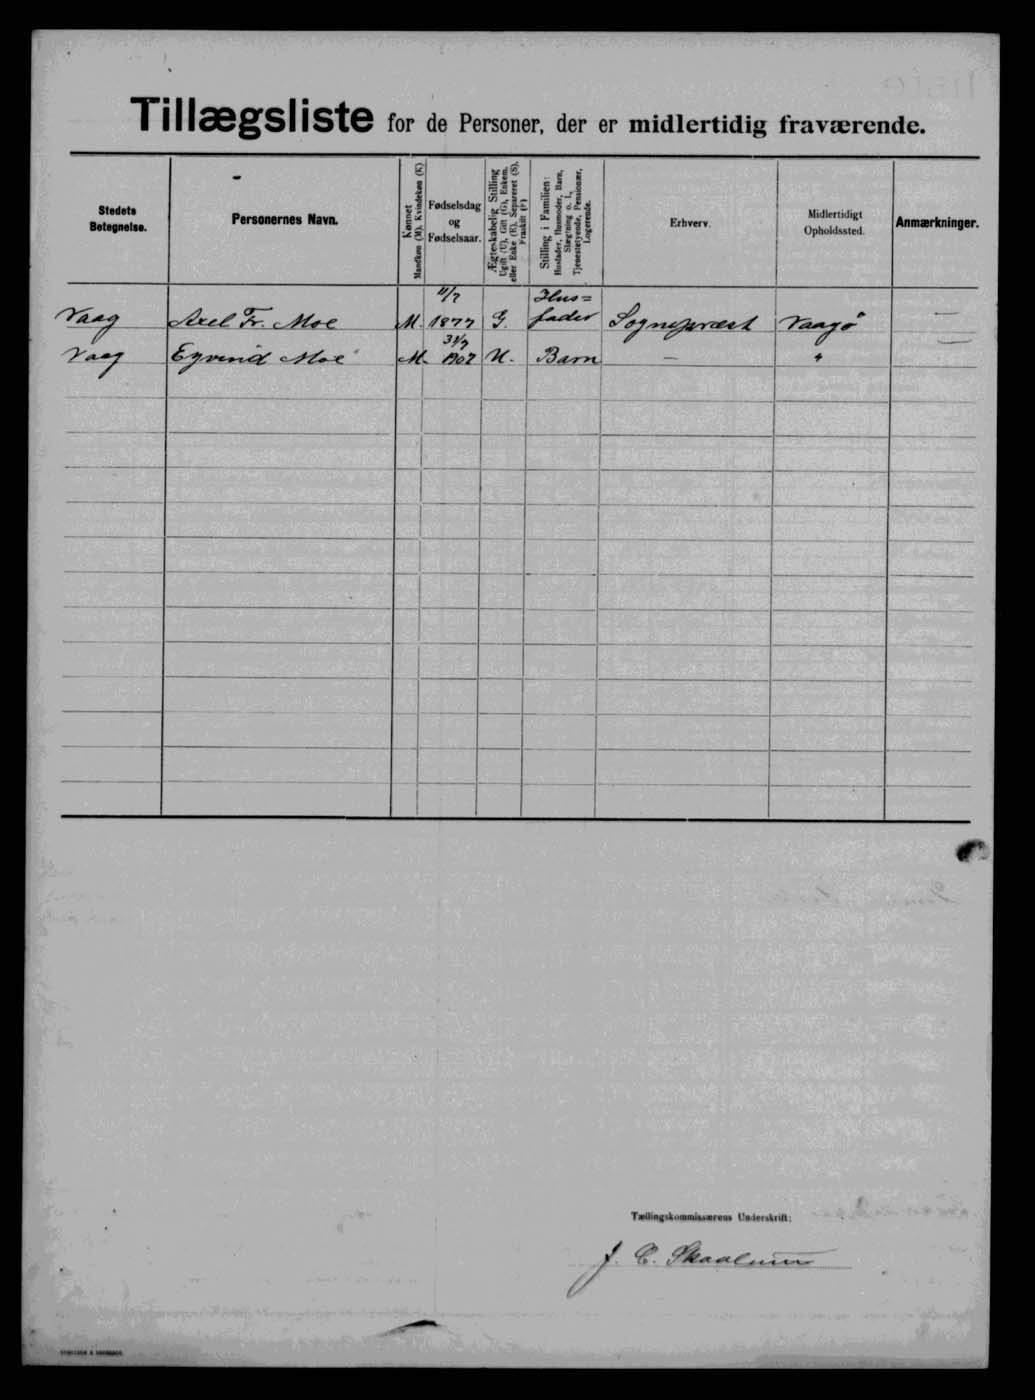 Tillægsliste for de Personer, der er midlertidig fraværende.
Stedets Betegnelse.
Personernes Navn.
Kønnet
Mandkøn (M). Kvindekøn (K)
Fødselsdag
og
Fødselsaar.
Ægteskabelig Stilling
Ugift (U), Gift (G), Enkem.
eller Enke (E), Separeret (S),
Fraskilt (F)
Stilling i Familien:
Husfader, Husmoder, Barn,
Slægtning o. l.,
Tjenestetyende, Pensionær,
Logerende.
Erhverv.
Midlertidigt
Opholdssted.
Anmærkninger.
Vaag Axel Fr. Moe M. 11/7 1877 G. Hus= fader Sognepræst Vaagø —
Vaag Eyvind Moe M. 31/7 1907 U. Barn — " —
Tællingskommissærens Underskrift:
J. C. Skaalum